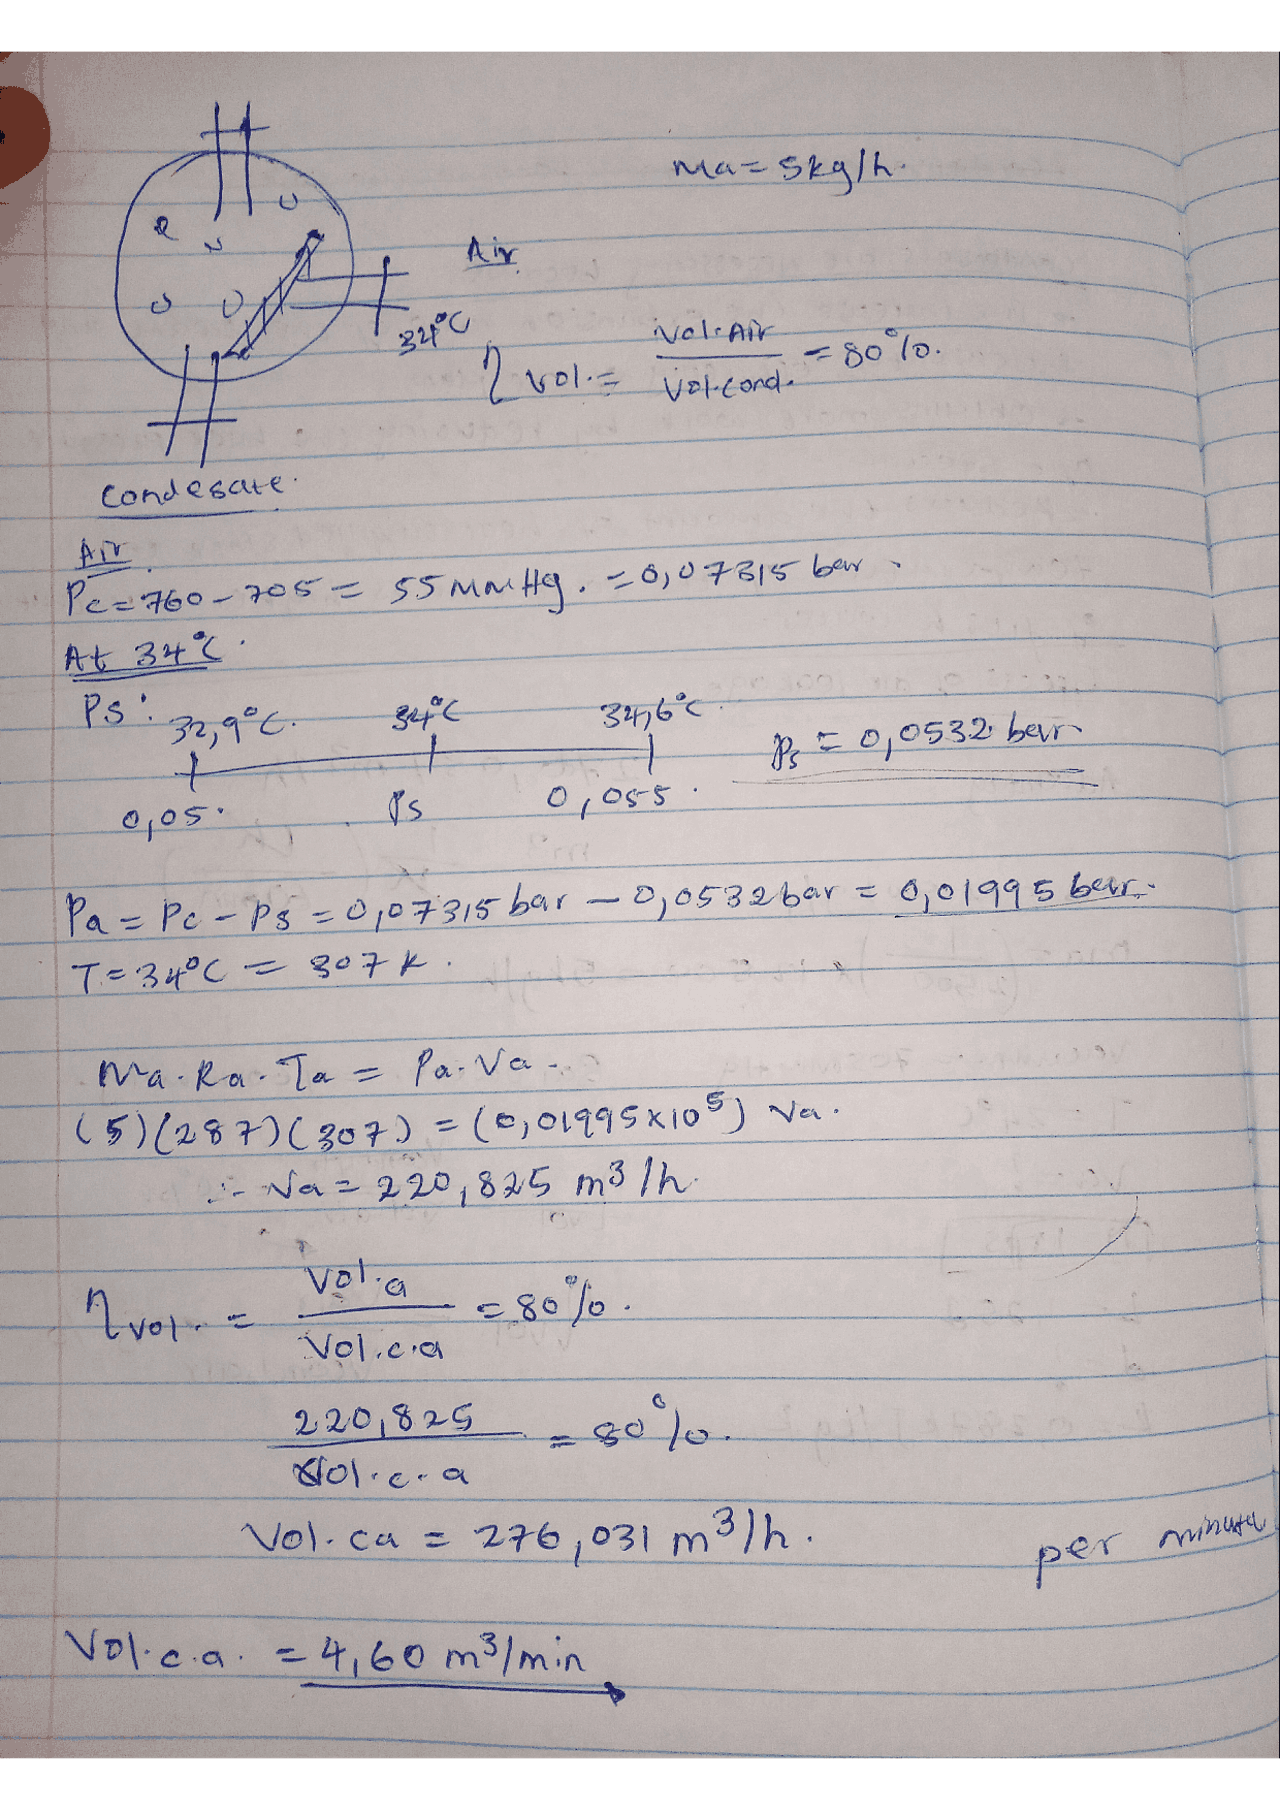 ma = 5kg/h.
Air
34°C
η vol. = Vol. Air / Vol. cond. = 80%.
Condesate.
Air.
Pc = 760 - 705 = 55 mmHg. = 0,07315 bar.
At 34°C.
Ps: 32,9°C. 34°C 34,6°C
0,05. Ps 0,055.
Ps = 0,0532 bar
Pa = Pc - Ps = 0,07315 bar - 0,0532 bar = 0,01995 bar.
T = 34°C = 307 K.
Ma. Ra. Ta = Pa. Va.
(5)(287)(307) = (0,01995 x 10^5) Va.
∴ Va = 220,825 m³/h.
η vol. = Vol.a / Vol.c.a = 80%.
220,825 / Vol.c.a = 80%.
Vol. ca = 276,031 m³/h.
per minute
Vol.c.a. = 4,60 m³/min